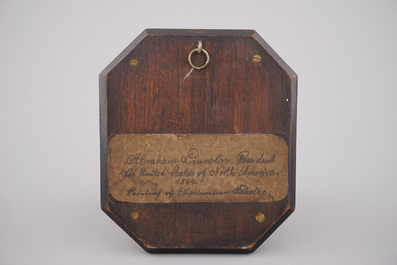 Abraham Lincoln, President
the United States of North America.
1864.
Painting of